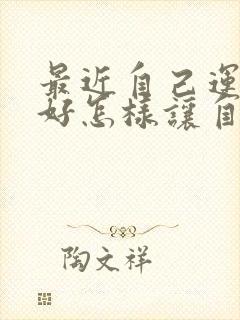 最近自己運
好怎樣讓自
陶文祥